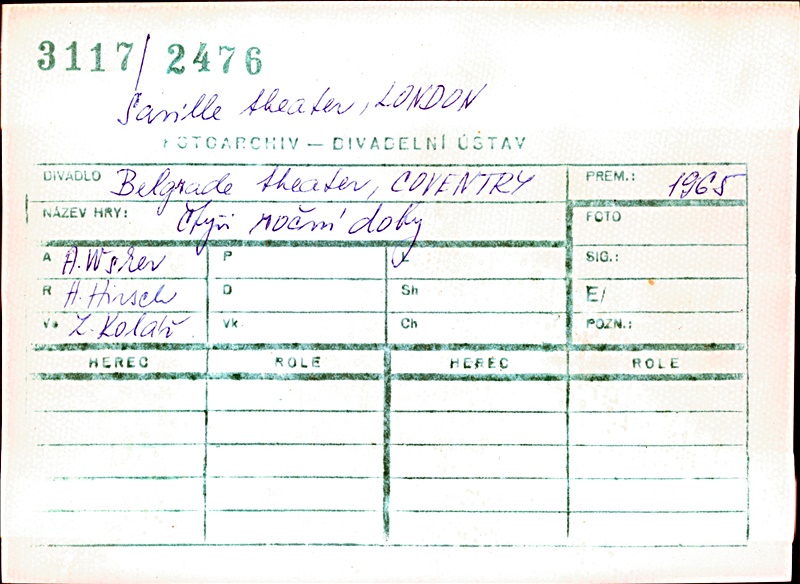 3117/2476
Saville theater, LONDON
FOTOARCHIV — DIVADELNÍ ÚSTAV
DIVADLO Belgrade theater, COVENTRY PREM.: 1965
NÁZEV HRY: Čtyři roční doby FOTO
A A. Wsker P L SIG.:
R H. Hirsch D Sh E/
Vs Z. Kolář Vk Ch POZN.:
HEREC ROLE HEREC ROLE